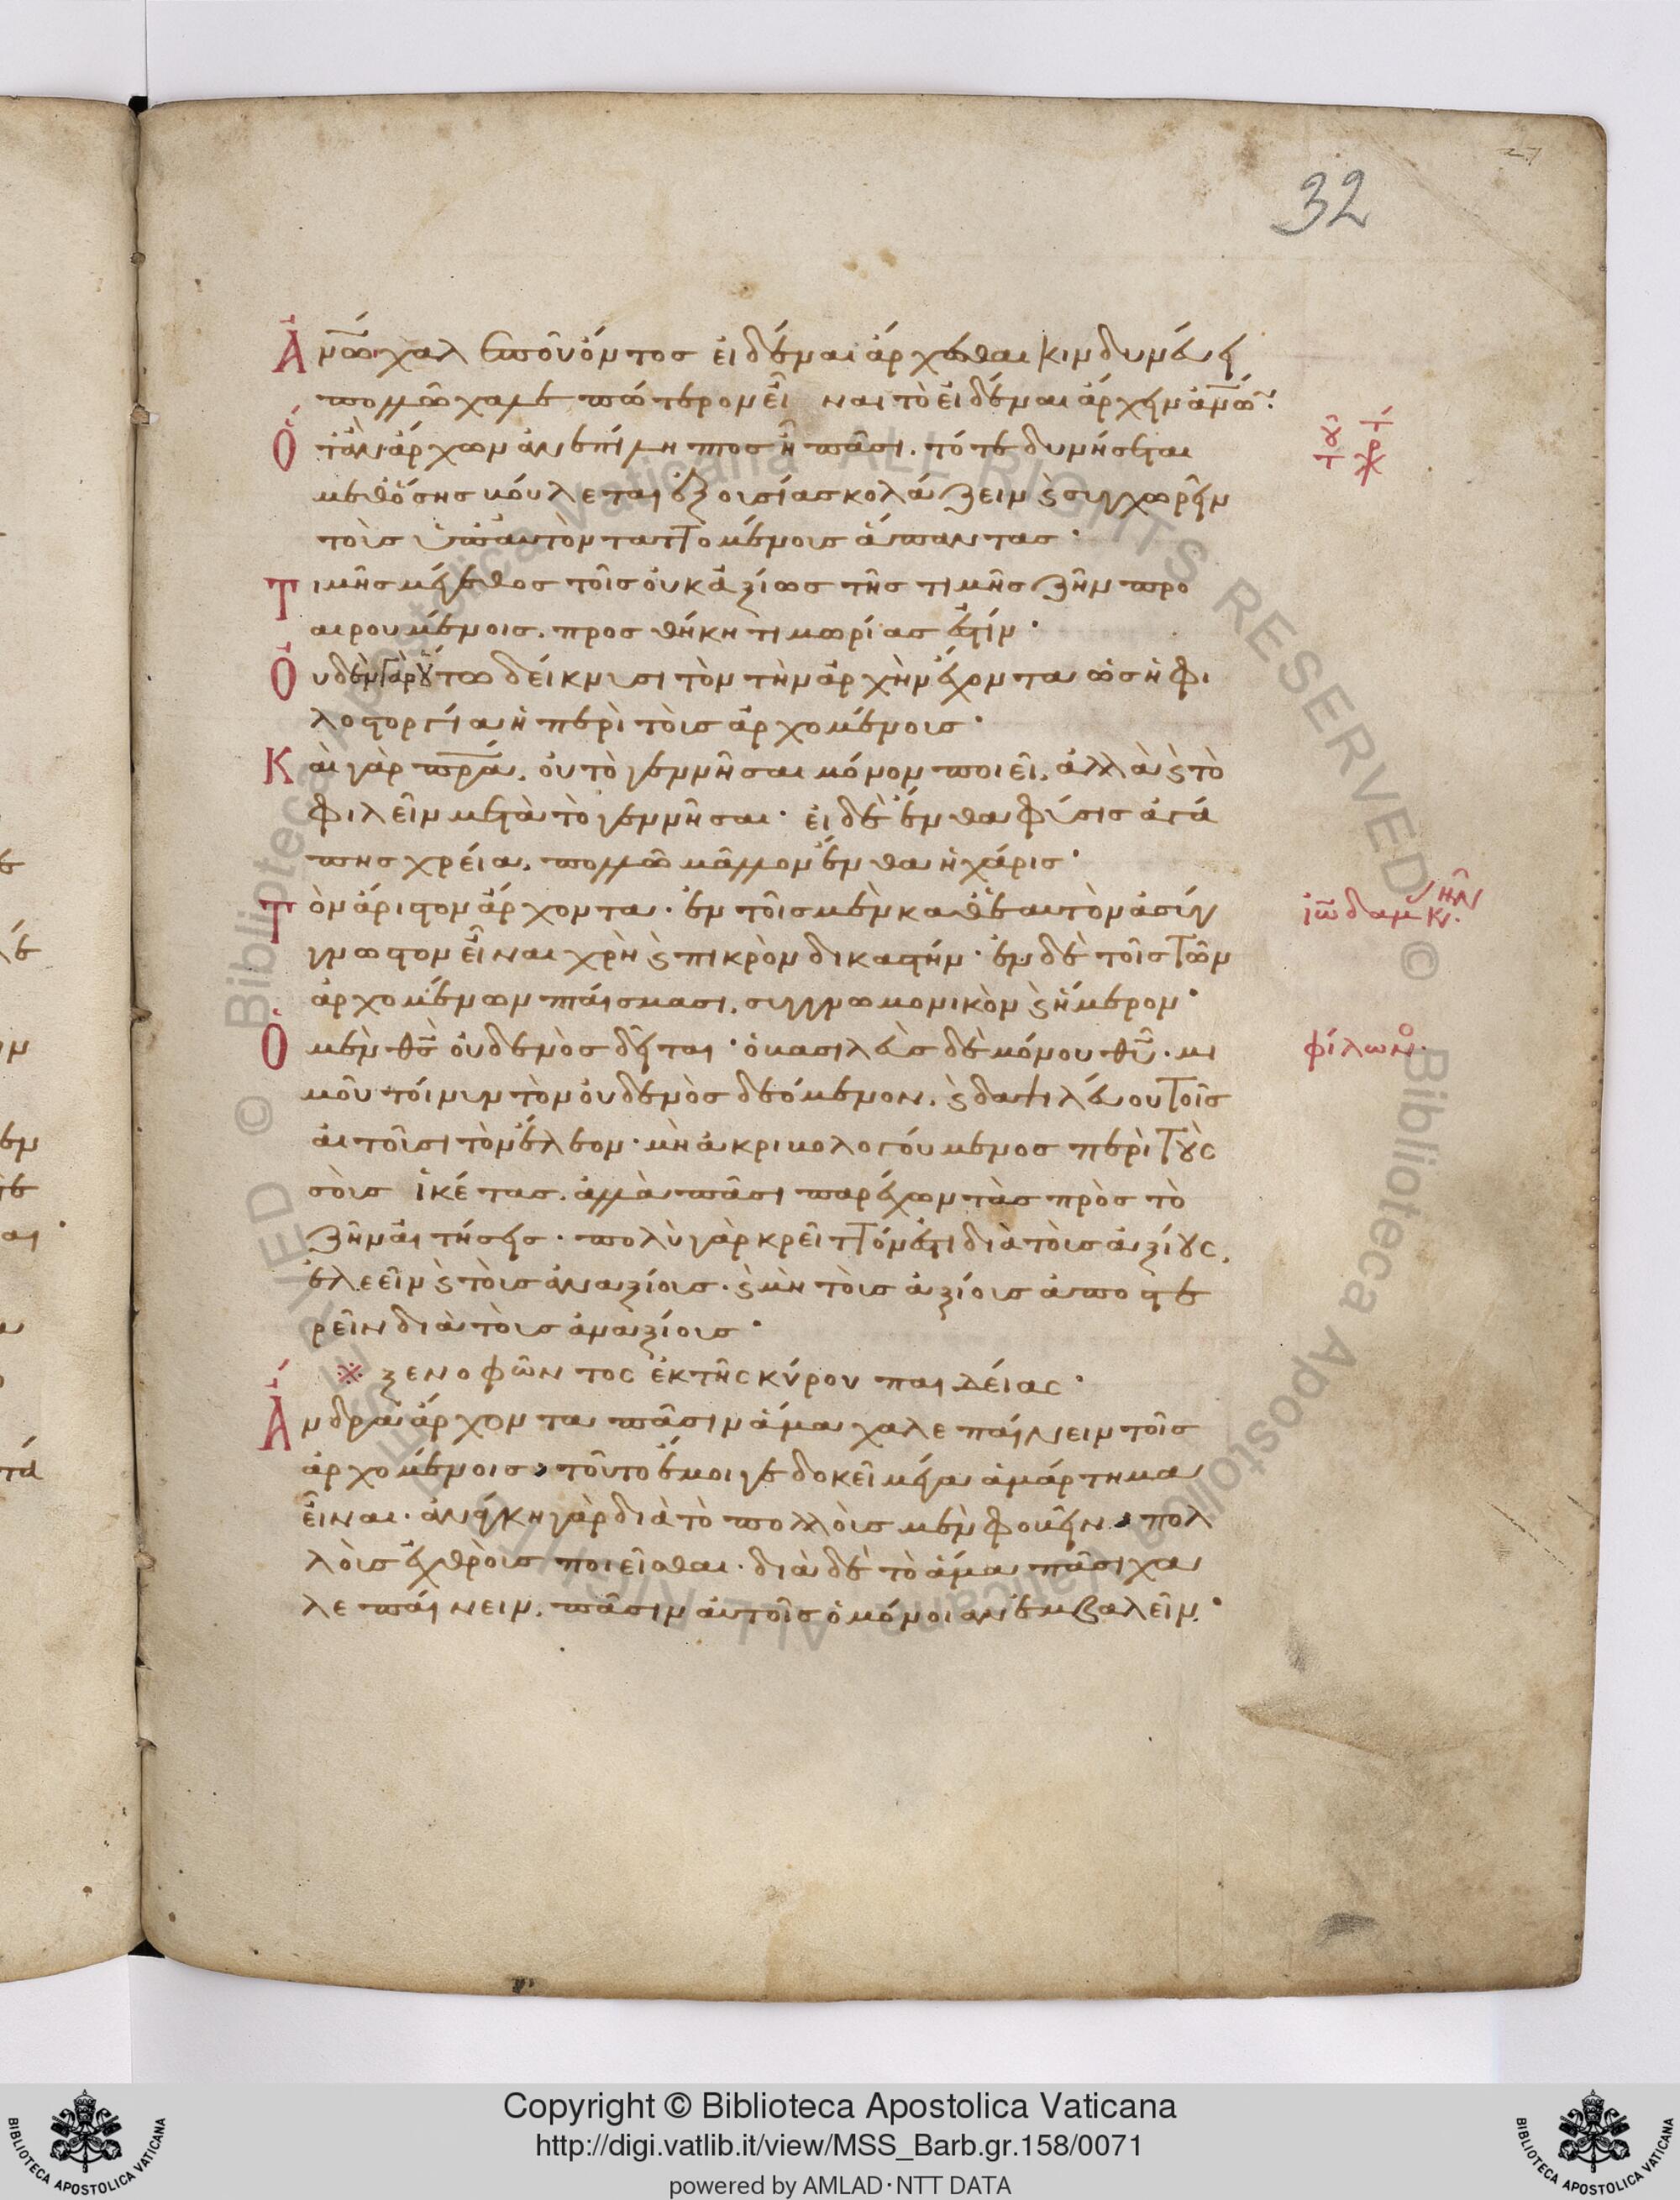 32
Ἀνω χαλεπὸν ὄντος εἰδέναι ἄρχεσθαι κινδυνεύει
πολλῶ χαλεπώτερον εἶναι τὸ εἰδέναι ἄρχειν ἀνων·
Ὅταν ἄρχων ἀνεπίληπτος ἦ πᾶσι. τότε δυνήσεται
μεθ' ὅσης βούλεται ἐξουσίας κολάζειν ϗ συγχωρεῖν
τοῖς ὑπ' αὐτὸν ταττομένοις ἅπαντας·
Τιμῆς μέγεθος τοῖς οὐκ ἀξίως τῆς τιμῆς ζῆν προ
αιρουμένοις. προσθήκη τιμωρίας ἐστίν·
Οὐδὲν γὰρ οὕτω δείκνυσι τὸν τὴν ἀρχὴν ἔχοντα ὡς ἡ φι
λοστοργία ἡ περὶ τοὺς ἀρχομένους·
Καὶ γὰρ πρα. οὐ τὸ γεννῆσαι μόνον ποιεῖ. ἀλλὰ ϗ τὸ
φιλεῖν μετὰ τὸ γεννῆσαι· εἰ δὲ ἔνθα φύσις ἀγά
πης χρεία. πολλῶ μᾶλλον ἔνθα ἡ χάρις·
Τὸν ἄριστον ἄρχοντα. ἐν τοῖς μὲν καθ' ἑαυτὸν ἀσύγ
γνωστον εἶναι χρὴ ϗ πικρὸν δικαστήν· ἐν δὲ τοῖς τῶν
ἀρχομένων πταίσμασι. συγγνωμονικὸν ϗ ἥμερον·
Ὁ μὲν θς οὐδενὸς δεῖται· ὁ βασιλεὺς δὲ μόνου θυ. μι
μοῦ τοίνυν τὸν οὐδενὸς δεόμενον. ϗ δαψιλεύου τοῖς
αἰτοῦσι τὸν ἔλεον· μὴ ἀκριβολογούμενος περὶ τοὺς
σοὺς ἱκέτας. ἀλλὰ πᾶσι παρέχων τὰς πρὸς τὸ
ζῆν αἰτήσεις. πολὺ γὰρ κρεῖττόν ἐστι διὰ τοὺς ἀξίους.
ἐλεεῖν ϗ τοὺς ἀναξίους. ϗ μὴ τοὺς ἀξίους ἀποστε
ρεῖν διὰ τοὺς ἀναξίους·
※ ξενοφῶντος ἐκ τῆς κύρου παιδείας·
Ἄνδρα ἄρχοντα πᾶσιν ἅμα χαλεπαίνειν τοῖς
ἀρχομένοις, τοῦτο ἔμοιγε δοκεῖ μέγα ἁμάρτημα
εἶναι. ἀνάγκη γὰρ διὰ τὸ πολλοὺς μὲν φοβεῖν, πολ
λοὺς ἐχθροὺς ποιεῖσθαι. διὰ δὲ τὸ ἅμα πᾶσι χα
λεπαίνειν. πᾶσιν αὐτοῖς ὁμόνοιαν ἐμβαλεῖν.
φίλωνο
Copyright © Biblioteca Apostolica Vaticana
http://digi.vatlib.it/view/MSS_Barb.gr.158/0071
powered by AMLAD·NTT DATA